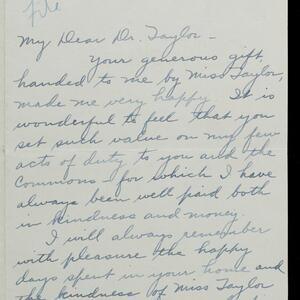 File
My Dear Dr. Taylor -
Your generous gift,
handed to me by Miss Taylor,
made me very happy. It is
wonderful to feel that you
set such value on my few
acts of duty to you and the
Commons for which I have
always been well paid both
in kindness and money.
I will always remember
with pleasure the happy
days spent in your home and
the kindness of Miss Taylor